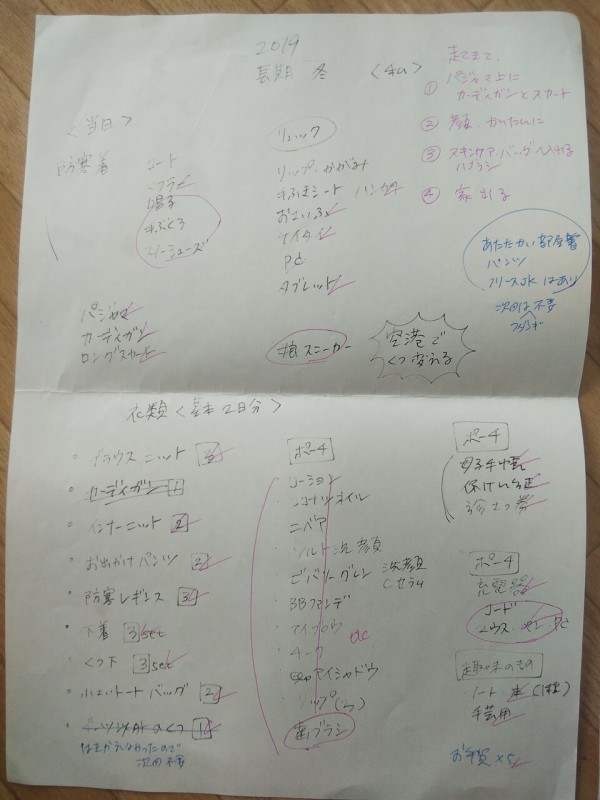 2019
長期 冬 〈私〉
起きて、
① パジャマ上に
カーディガンとスカート
② 顔、かんたんに
③ スキンケア、バッグへ入れる
ハブラシ
④ 家出る
〈当日〉
防寒着
コート
マフラー
帽子
手ぶくろ
スノーシューズ
リュック
リップ・かがみ
手ふきシート ハンカチ
おさいふ
ケイタイ
PC
タブレット
あたたかい部屋着
パンツ
フリースOK はあり
次回は不要
パジャマ
カーディガン
ロングスカート
スニーカー
空港で
くつ変える
衣類〈基本2日分〉
ブラウス ニット 3
カーディガン 1
インナーニット 2
お出かけパンツ 3
防寒レギンス 3
下着 3 set
くつ下 3 set
小さいトートバッグ 2
のくつ 1
なので
次回不要
ポーチ
ローション
ココナツオイル
ニベア
ソルト洗顔
ビバリーグレン 洗顔
Cセラム
BBファンデ
アイブロウ
チーク
アイシャドウ
リップ
OK
歯ブラシ
ポーチ
母子手帳
保けん証
診さつ券
ポーチ
充電器
コード
マウス PC
趣味のもの
ノート 本（1冊）
手芸用
お年賀 ×5